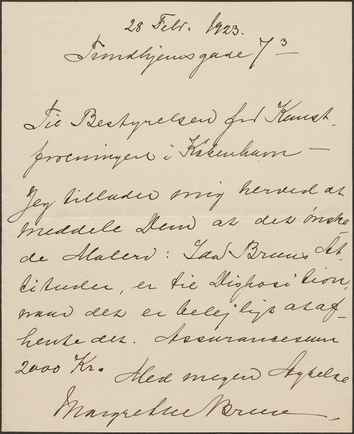 28 Febr. 1923.
Trondhjemsgade 7³
Til Bestyrelsen for Kunst-
foreningen i København —
Jeg tillader mig herved at
meddele Dem at det ønske
de Maleri: Ida Bruns At-
tituder, er til Disposition,
naar det er belejligt at af-
hente det. Assurancesum
2000 Kr.
Med megen Agtelse
Margrethe